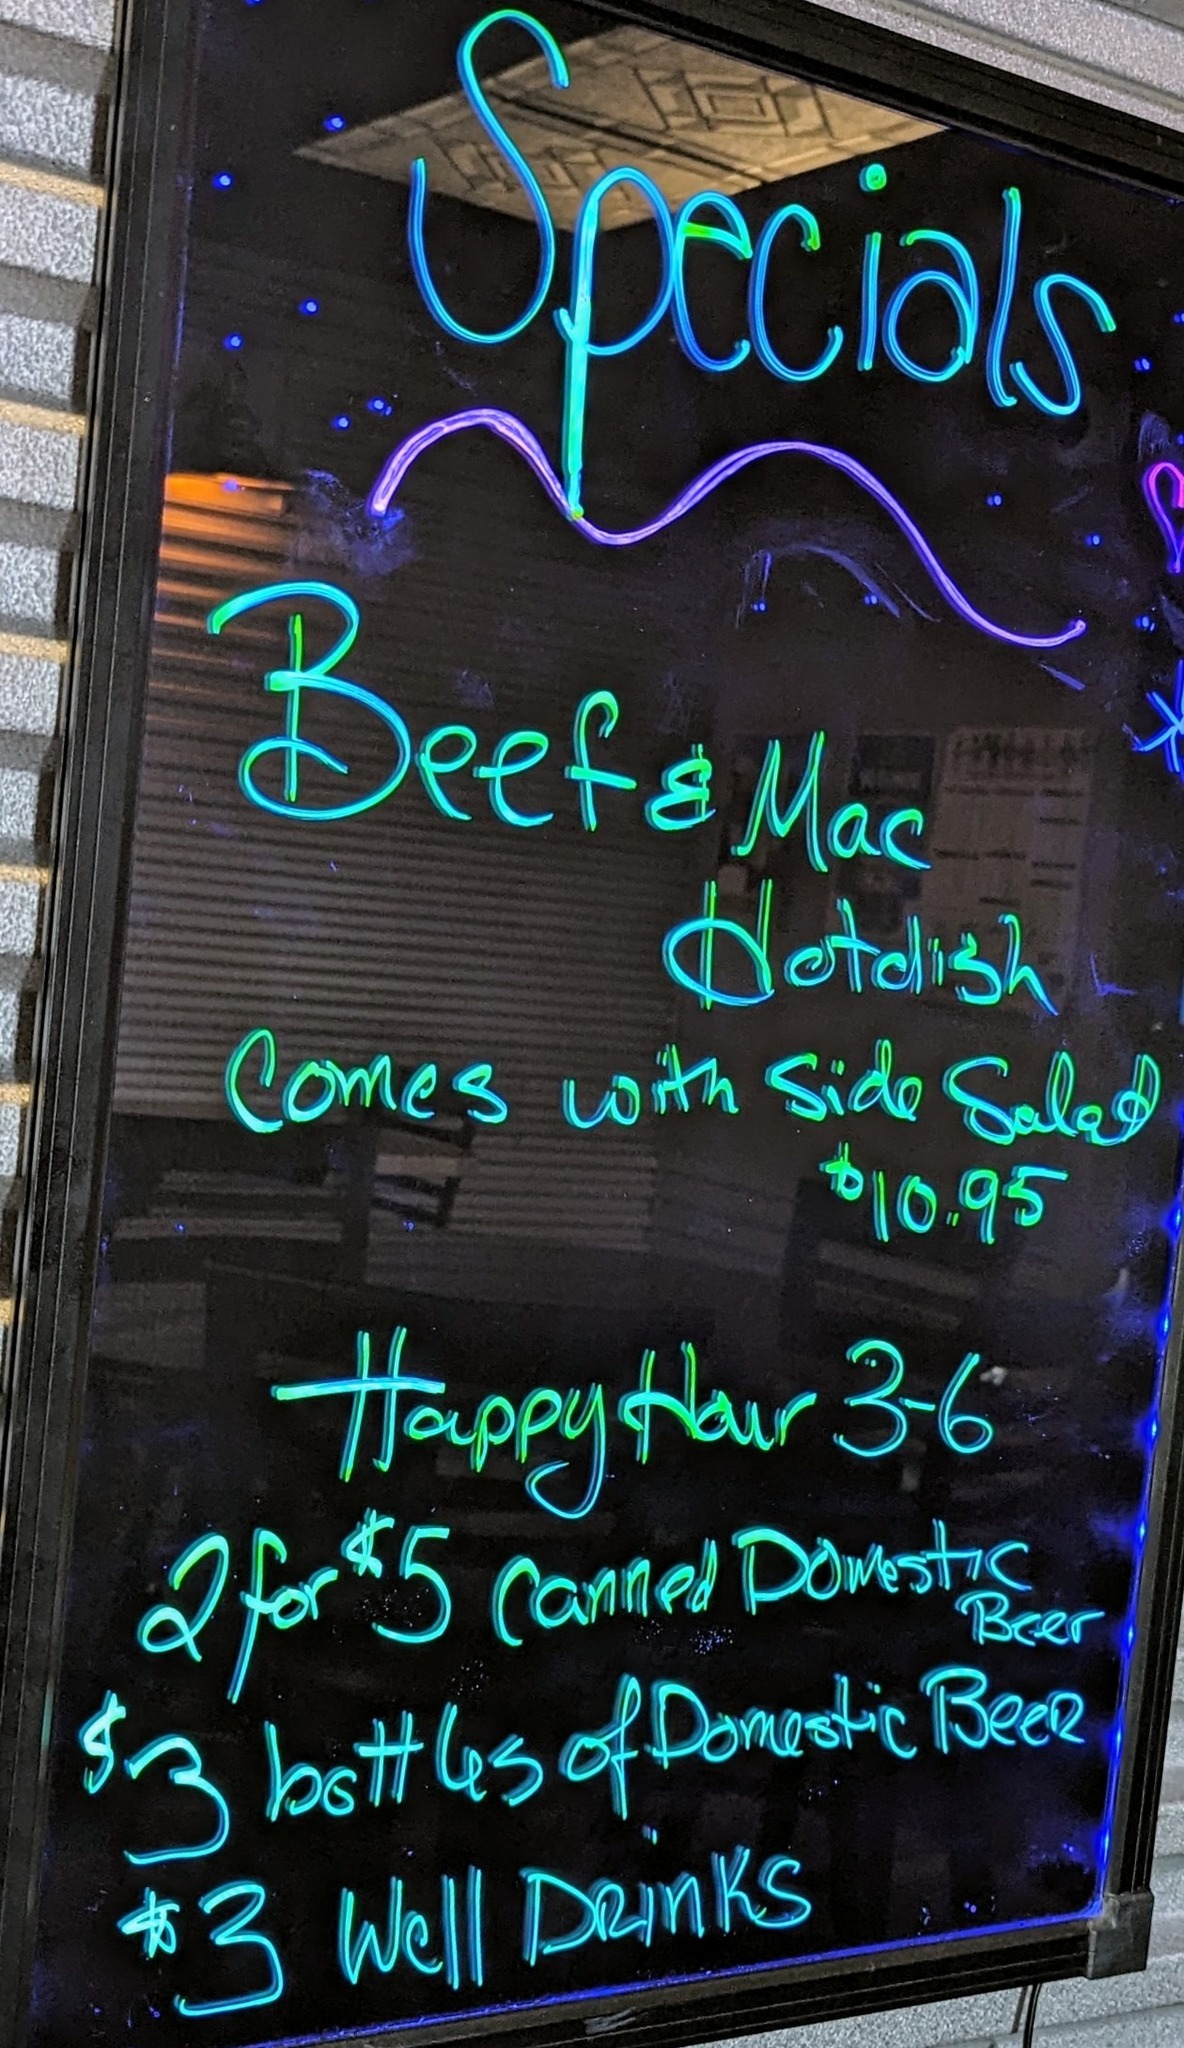 Specials
Beef & Mac
Hotdish
Comes with Side Salad
$10.95
Happy Hour 3-6
2 for $5 canned Domestic
Beer
$3 bottles of Domestic Beer
$3 Well Drinks